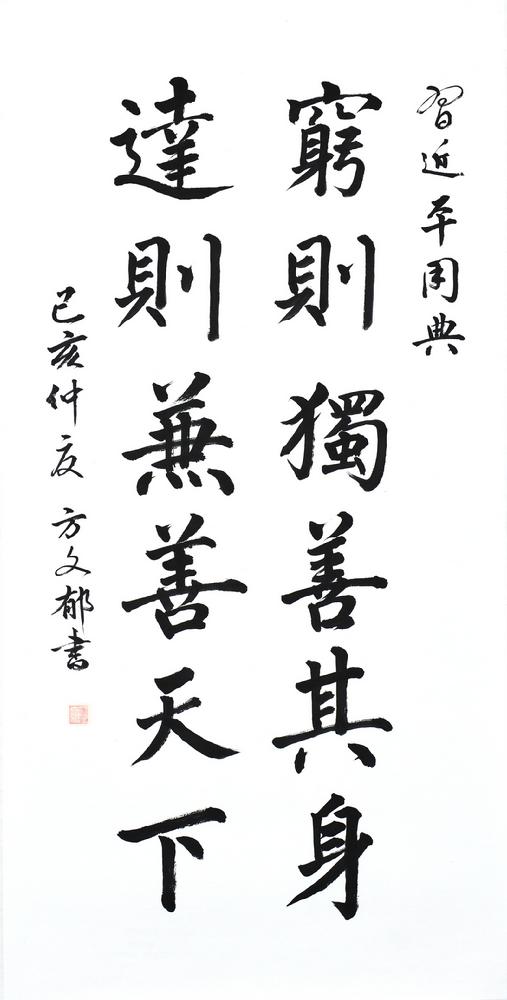 習近平用典
窮則獨善其身
達則兼善天下
己亥仲夏 方文郁書